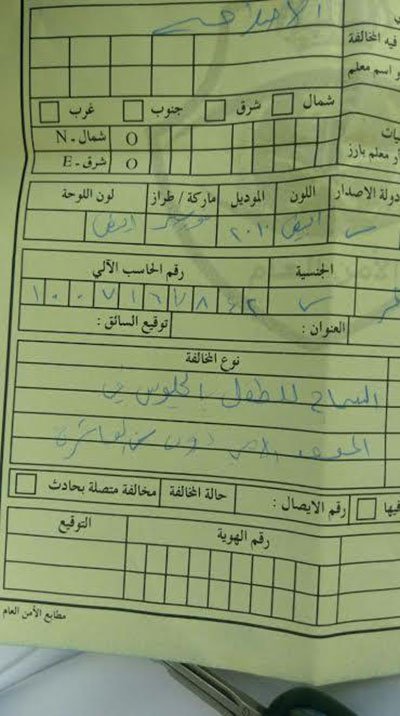 فيه المخالفة
و اسم معلم
شمال شرق جنوب غرب
شمال - N O
معلم بارز
شرق - E O
دولة الاصدار اللون الموديل ماركة / طراز لون اللوحة
س ابيض ٢٠١٠ ابيض
الجنسية رقم الحاسب الآلي
س
العنوان : توقيع السائق :
نوع المخالفة
السماح للطفل بالجلوس في
المقعد الامامي دون سن العاشرة
فيها رقم الايصال : حالة المخالفة مخالفة متصلة بحادث
رقم الهوية التوقيع
مطابع الأمن العام